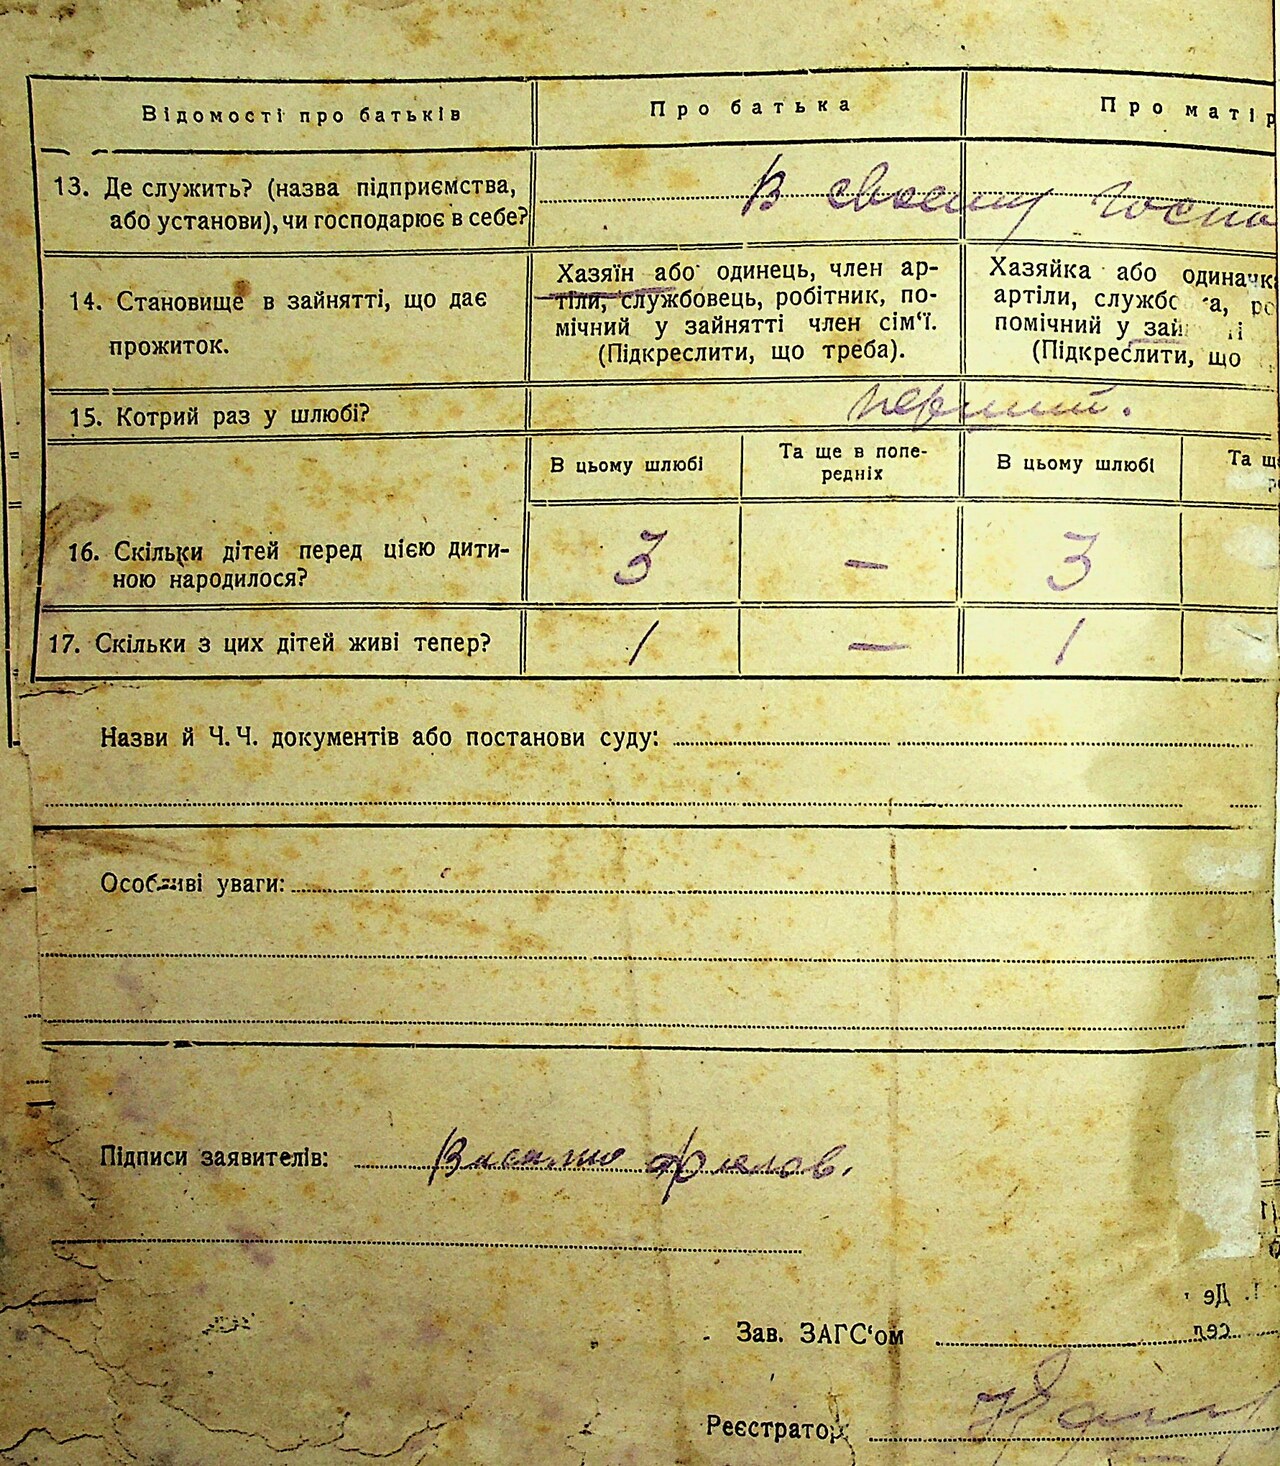 Відомості про батьків Про батька Про матір
13. Де служить? (назва підприємства, В своему госпо
або установи), чи господарює в себе?
14. Становище в зайнятті, що дає
прожиток.
Хазяїн або одинець, член ар-
тіли, службовець, робітник, по-
мічний у зайнятті член сім‘ї.
(Підкреслити, що треба).
Хазяйка або одиначка
артіли, службо
помічний у
(Підкреслити, що
15. Котрий раз у шлюбі? перший.
В цьому шлюбі Та ще в попе- В цьому шлюбі Та ще
редніх
16. Скільки дітей перед цією дити-
ною народилося? 3 — 3
17. Скільки з цих дітей живі тепер? 1 — 1
Назви й Ч. Ч. документів або постанови суду:
Особливі уваги:
Підписи заявителів:
Зав. ЗАГС‘ом
Реєстратор